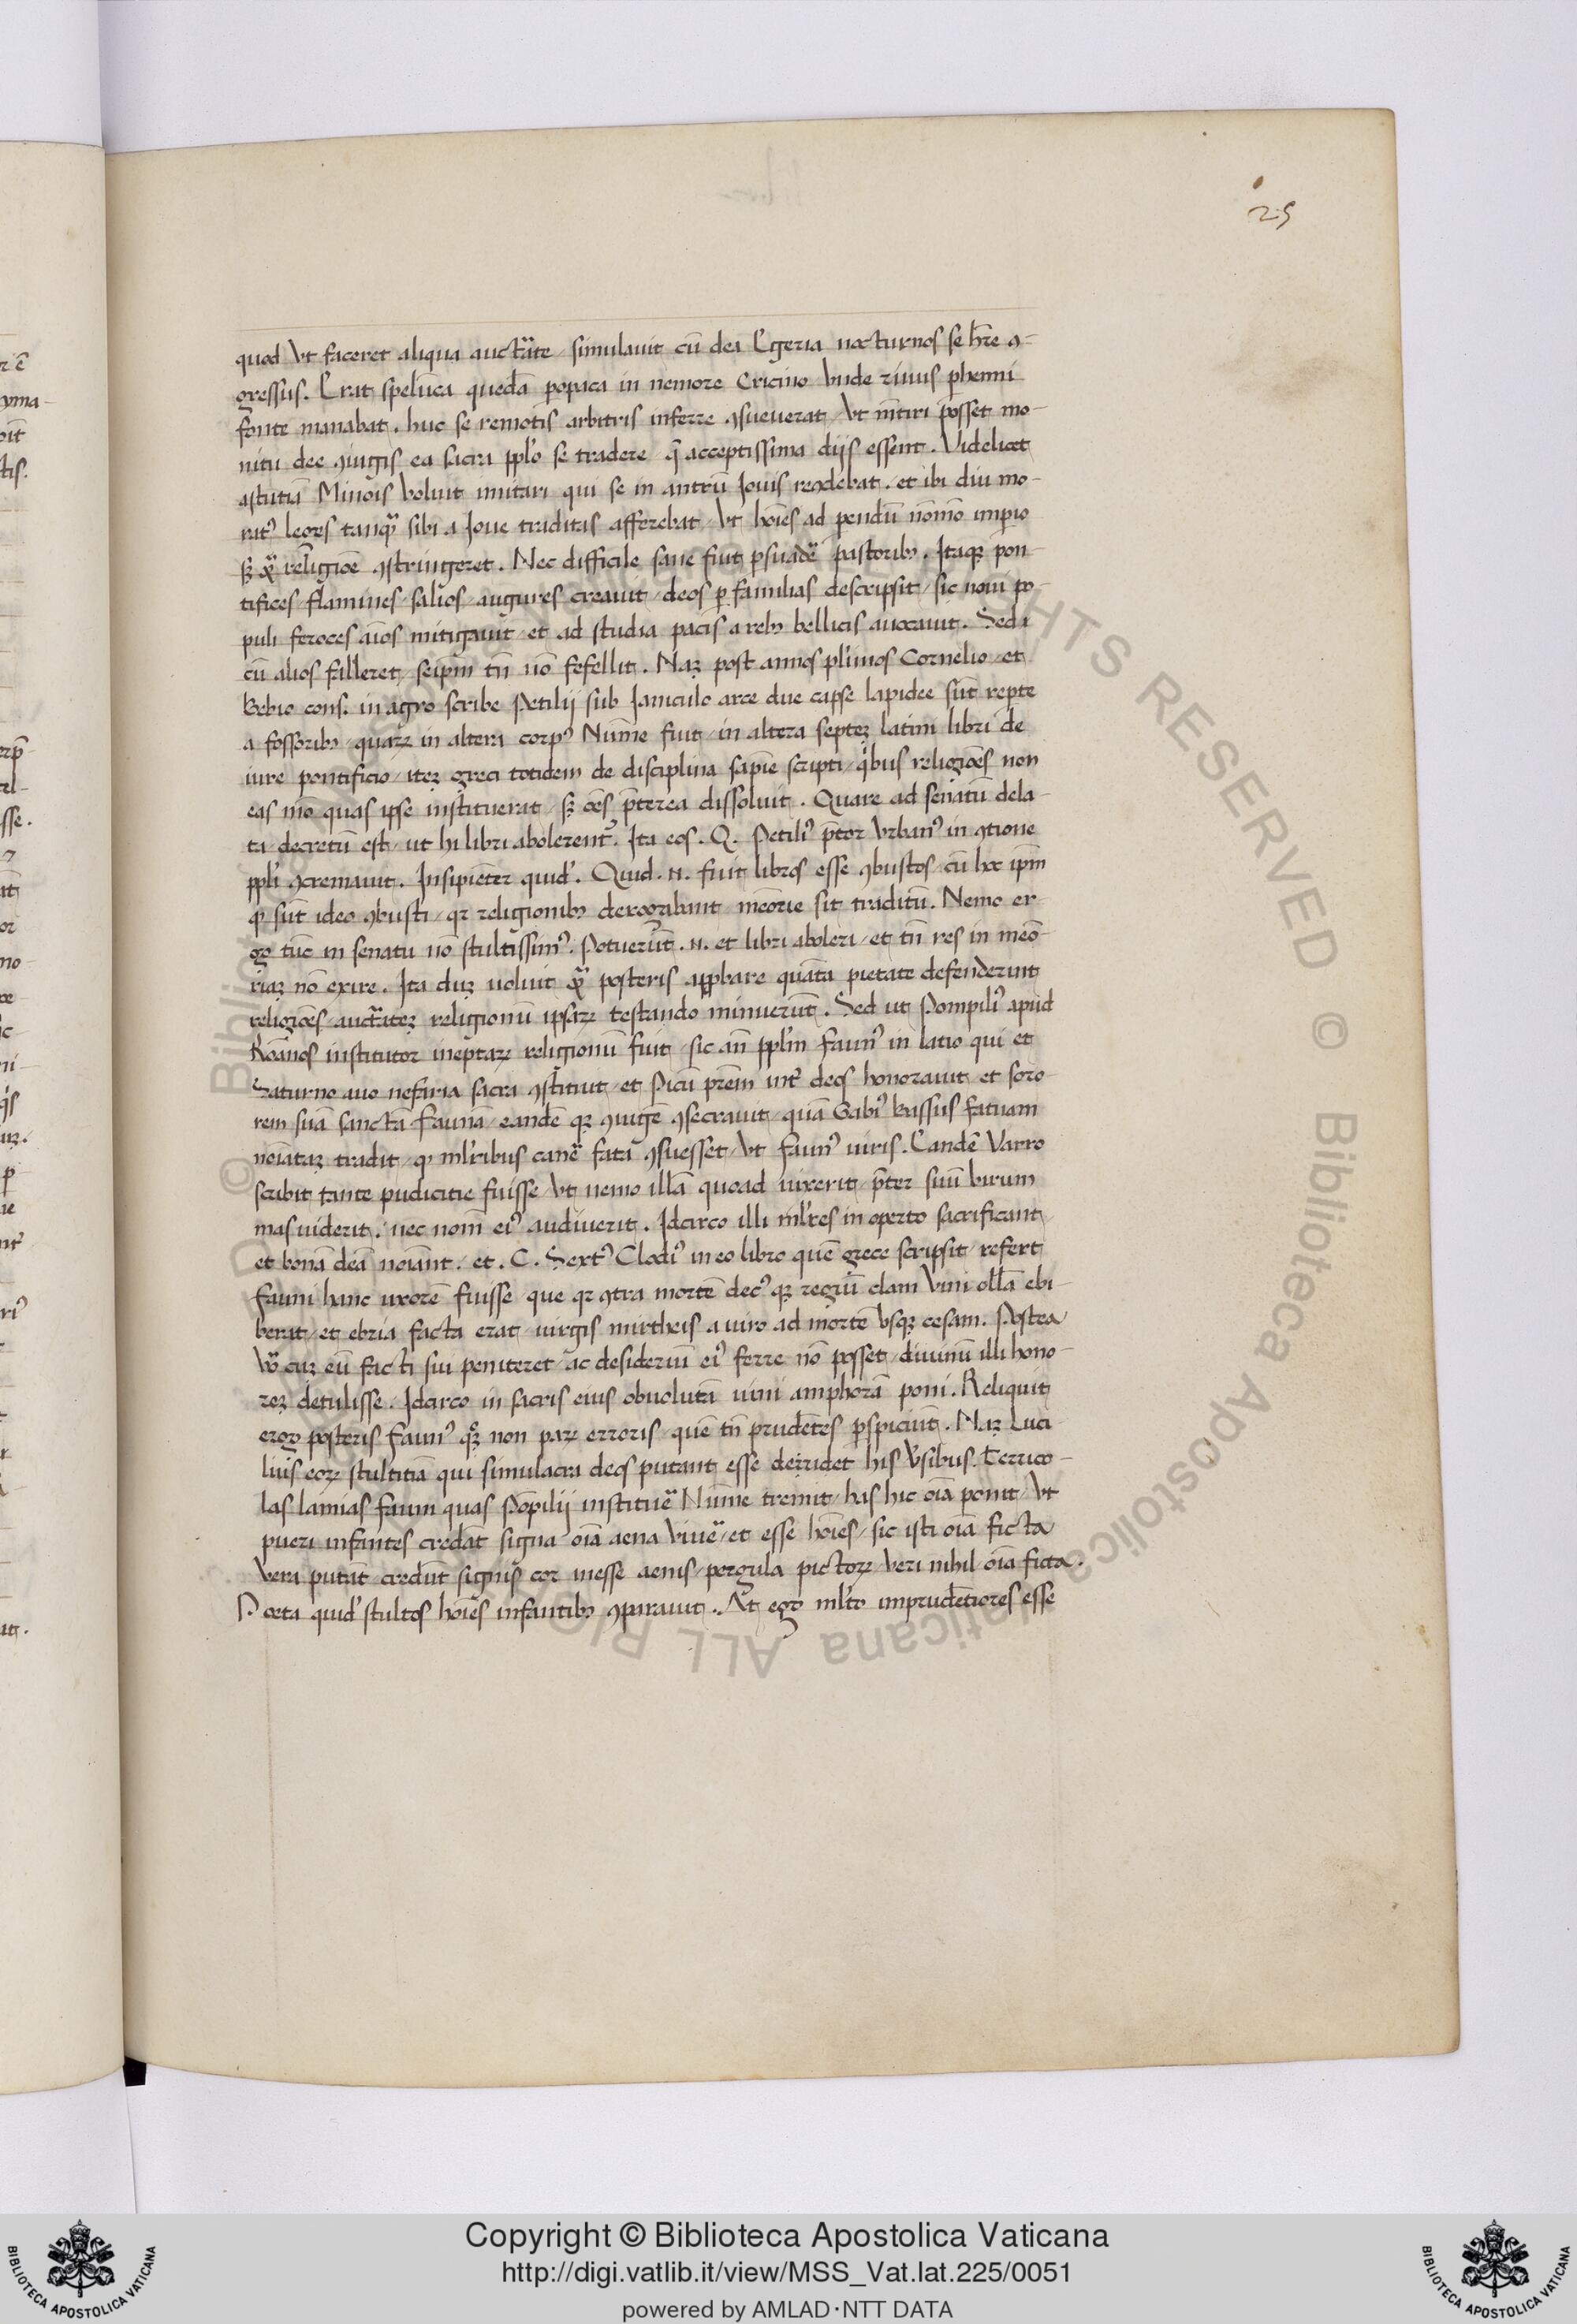 25
quod vt faceret aliqua auctāte / simulauit cū dea Egeria nocturnos se hr̄e ꝯ-
gressus. Erat spelūca quedā popaca in nemore Ericino vnde riuus ꝑhenni
fonte manabat. huc se remotis arbitris inferre ꝯsueuerat / vt mētiri posset mo-
nitu dee ꝯiugis ea sacra pplo se tradere q̄ acceptissima dijs essent. Videlicet
astutiā Minois voluit imitari qui se in antrū Iouis recōdebat. et ibi diu mo-
ratꝰ leges tanqꝫ sibi a Ioue traditas afferebat / vt hoīes ad ꝑendū nō mō imꝑio
sꝫ ⁊ religiōe ꝯstringeret. Nec difficile sane fuit ꝑsuadē pastoribꝫ. Itaqꝫ pon-
tifices / flamines / salios / augures creauit / deos ꝑ familias descripsit / sic noui po-
puli feroces aīos mitigauit / et ad studia pacis a rebꝫ bellicis auocauit. Sed
cū alios falleret / seipm̄ tn̄ nō fefellit. Naꝫ post annos pl'imos Cornelio / et
Bebio cons. in agro scribe Petilij sub Ianiculo arce due capse lapidee sūt reꝑte
a fossoribꝫ / quaꝝ in altera corpꝰ Nume fuit / in altera septeꝫ latini libri de
iure pontificio / iteꝫ greci totidem de disciplina sapīe scripti / qͥbus religiōes non
eas mō quas ipse instituerat / sꝫ oēs p̄terea dissoluit. Quare ad senatū dela-
ta / decretū est / ut hi libri abolerent᷑. Ita eos. Q. Petiliꝰ p̄tor vrbanꝰ in ꝯtione
ppli ꝯcremauit. Insipiēter quid'. Quid. n. fuit libros esse ꝯbustos / cū hoc ipm̄
ꝙ sūt ideo ꝯbusti / qꝛ religionibꝫ derogabant meōrie sit traditū. Nemo er-
go tūc in senatu nō stultissimꝰ. Potuerūt. n. et libri aboleri / et tn̄ res in meō-
riaꝫ nō exire. Ita duꝫ uoluit ⁊ posteris apꝓbare quāta pietate defenderint
religiōes / auctātez religionū ipsaꝝ testando minuerūt. Sed ut Pompiliꝰ apud
Roāmos institutor ineptaꝝ religionū fuit / sic an̄ pplm̄ Faunꝰ in latio qui et
Saturno auo nefaria sacra ꝯstituit / et Picū pr̄em int' deos honorauit / et soro-
rem suā sanctā Faunā / eandē qꝫ ꝯiugē ꝯsecrauit / quā Gabiꝰ Bassus fatuam
noīatāꝫ tradit / ꝙ ml'ribus canē fata ꝯsuesset / vt Faunꝰ uiris. Eandē Varro
scribit tante pudicitie fuisse / vt nemo illā quoad uixerit / p̄ter suū uirum
mas uiderit / nec nom̄ eiꝰ audiuerit. Idcirco illi ml'res in operto sacrificant
et bonā deā noīant. et. C. Sextꝰ Clodiꝰ in eo libro quē grece scripsit / refert
Fauni hanc uxorē fuisse / que qꝛ ꝯtra mortē decꝰ qꝫ regiū clam vini ollā ebi-
berat / et ebria facta erat / uirgis mirtheis a uiro ad mortē vsqꝫ cesam. Postea
vō cuꝫ eū facti sui peniteret / ac desideriū eiꝰ ferre nō posset / diuinū illi hono-
reꝫ detulisse. Idcirco in sacris eius obuolutā uini amphorā poni. Reliquit
ergo posteris Faunꝰ qͦqꝫ non paꝝ erroris / quē tn̄ prudētes ꝑspiciūt. Naꝫ Luci-
lius eoꝝ stultitiā qui simulacra deos putant esse derridet his v̄sibus. Terrico-
las lamias Fauni quas Pōpilij instituē Nume tremit / has hic oīa ponit / vt
pueri infantes credāt signa oīa aena viuē / et esse hoīes / sic isti oīa ficta
vera putāt / credūt signis cor inesse aenis / pergula pictoꝝ / veri nihil oīa ficta.
Poeta quid' stultos hoīes infantibꝫ ꝯparauit. At ego ml'to imprudētiores esse
Copyright © Biblioteca Apostolica Vaticana
http://digi.vatlib.it/view/MSS_Vat.lat.225/0051
powered by AMLAD·NTT DATA